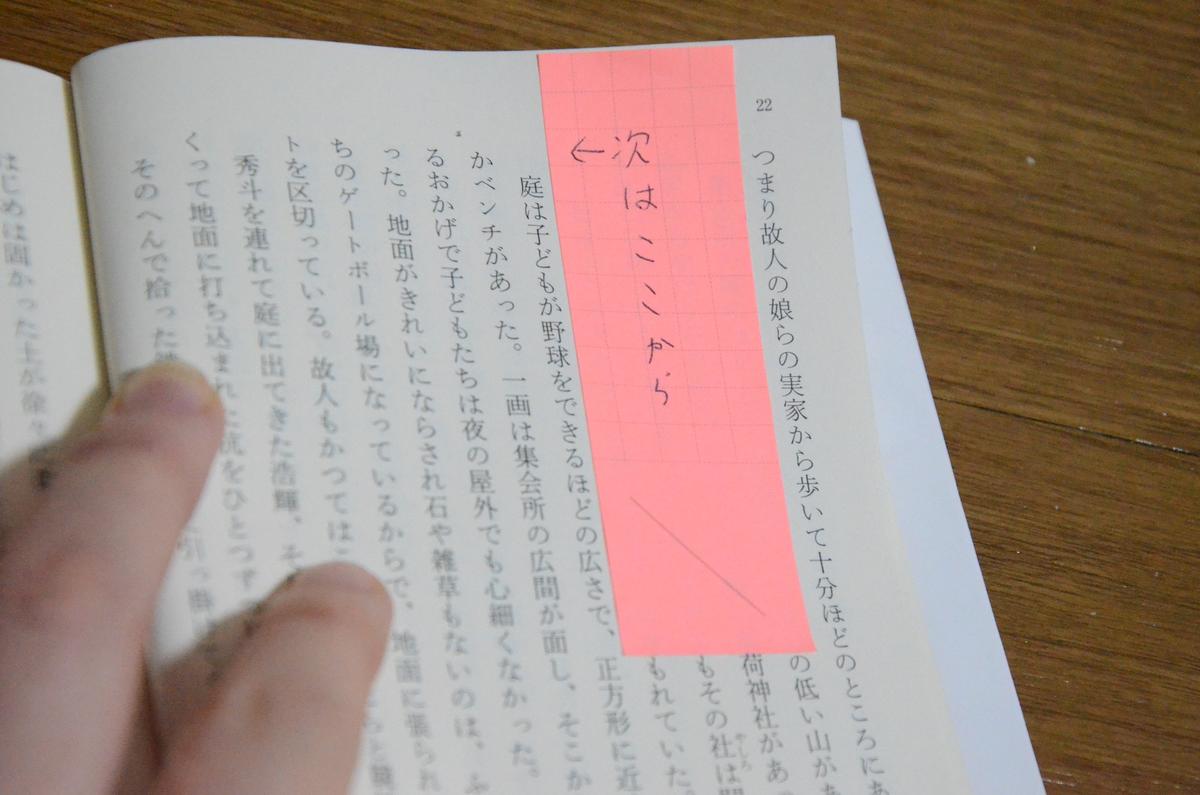 22
つまり故人の娘らの実家から歩いて十分ほどのところにあ
の低い山があ
荷神社があ
もその社は
やしろ
もれていた。
←次はここから
庭は子どもが野球をできるほどの広さで、正方形に近
かベンチがあった。一画は集会所の広間が面し、そこか
るおかげで子どもたちは夜の屋外でも心細くなかった。
った。地面がきれいにならされ石や雑草もないのは、ふ
ちのゲートボール場になっているからで、地面に張られ
トを区切っている。故人もかつてはこ
秀斗を連れて庭に出てきた浩輝、そ
くって地面に打ち込まれた杭をひとつず
そのへんで拾った 引っ掛け
はじめは固かった土が徐々